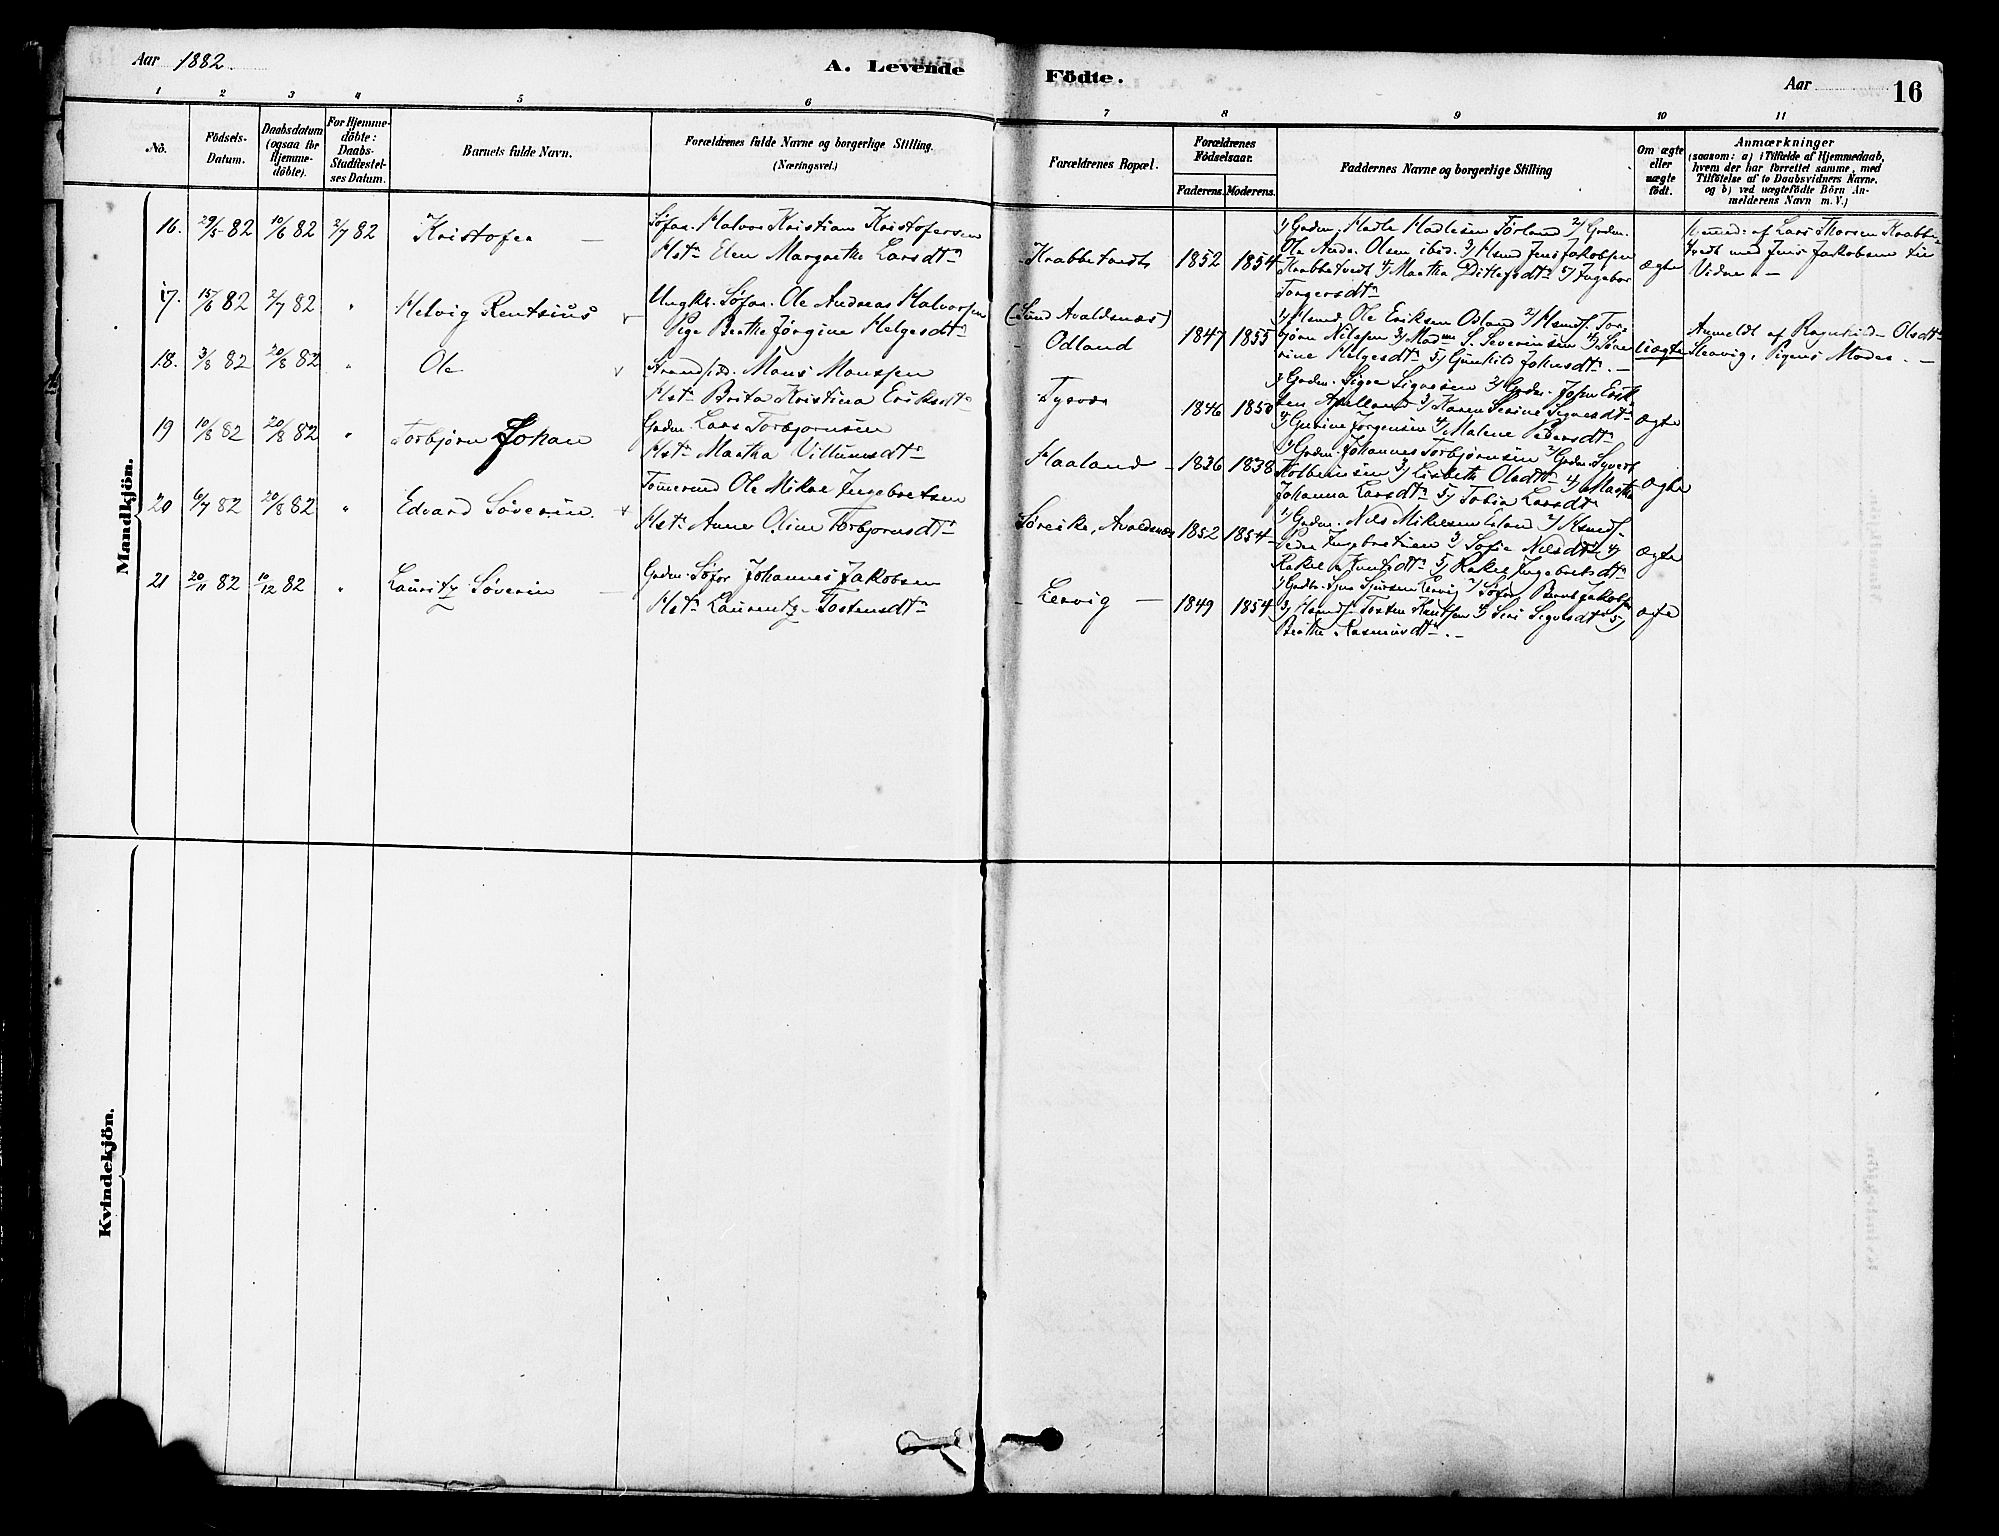 Aar 1882.
A. Levende
Födte.
Aar
16
1 2 3 4 5 6 7 8 9 10 11
No.
Födsels-Datum.
Daabsdatum (ogsaa for Hjemmedöbte).
For Hjemmedöbte: Daabs-Stadfæstelses Datum.
Barnets fulde Navn.
Forældrenes fulde Navne og borgerlige Stilling.
(Næringsvei.)
Forældrenes Bopæl.
Forældrenes Födselsaar.
Faderens.
Moderens.
Faddernes Navne og borgerlige Stilling
Om ægte eller uægte født.
Anmærkninger
(saasom: a) i Tilfælde af Hjemmedaab, hvem der har forrettet samme, med Tilföielse af to Daabsvidners Navne. og b) ved uægtefödte Börn Anmelderens Navn m. V.)
Mandkjön.
16. 29/5 82 10/6 82 2/7 82 Kristofer
Søfar. Halvor Kristian Kristofersen
Hst. Elen Margrethe Larsdtr
Krabbetvedt 1852 1854
1/ Grdm. Hadle Hadlesen Førland 2/ Grdm.
Ole Andr. Olsen ibid. 3/ Hsmd Jens Jakobsen
Krabbetvedt 4/ Martha Ditlefsdtr 5/ Ingebor
Torgersdtr
ægte
af Lars Thorsen Krabbe-
tvedt med Jens Jakobsen
Vidne
17. 15/6 82 2/7 82 " Helvig Rentsius
Ungkr. Søfar. Ole Andreas Halvorsen
Pige Berthe Jørgine Helgesdtr
(Sund Avaldsnæs)
Odland 1847 1855
1/ Hsmd Ole Eriksen Odland 2/ Hsmdf. Tor-
bjørn Nilssen 3/ Madm S. Severinsen 4/ Søre-
rine Helgesdtr 5/ Gunhild Johnsdtr.
Uægte
Anmeldt af Ragnhild Olsdtr
Slaavig, Pigens Moder.
18. 3/8 82 20/8 82 " Ole
Strandsid. Mons Monssen
Hst. Brita Kristina Eriksdtr
Tysvær 1846 1850
1/ Grdm. Sigve Sigvesen 2/ Grdm. John Erik-
sen Apelland 3/ Karen Serine Sigvesdtr
4/ Gurine Jørgensen 4/ Malene Pedersdtr
ægte
19 10/8 82 20/8 82 " Torbjørn Johan
Grdm. Lars Torbjørnsen
Hst. Martha Villumsdtr
Haaland 1836 1838
1/ Grdm. Johannes Torbjørnsen 2/ Grdm. Syvert
Kolbeinsen 3/ Lisbeth Olsdtr 4/ Martha
Johanna Larsdtr 5/ Tobia Larsdtr
ægte
20 6/7 82 20/8 82 " Edvard Søverin.
Tømermd Ole Mikal Ingebretsen
Hst. Anne Oline Torbjørnsdtr
Søreike, Avaldsnæs 1852 1854
1/ Grdm. Nils Mikelsen Eiland 2/ Hsmdf.
Peder Ingebretsen 3/ Sofie Nilsdtr 4/
Rakel Knutsdtr 5/ Rakel Ingebretsdtr
ægte
21 20/11 82 10/12 82 " Lauritz Søverin
Grdm. Søfar Johannes Jakobsen
Hst. Laurentz Tostensdtr
Lervig 1849 1854
1/ Grdbr. Sjur Sjursen Lervig 2/ Søfar Bernt Jakobsen
3/ Hsmdf. Tosten Knutsen 4/ Siri Sigvesdtr 5/
Berthe Rasmusdtr.
ægte
Kvindekjön.